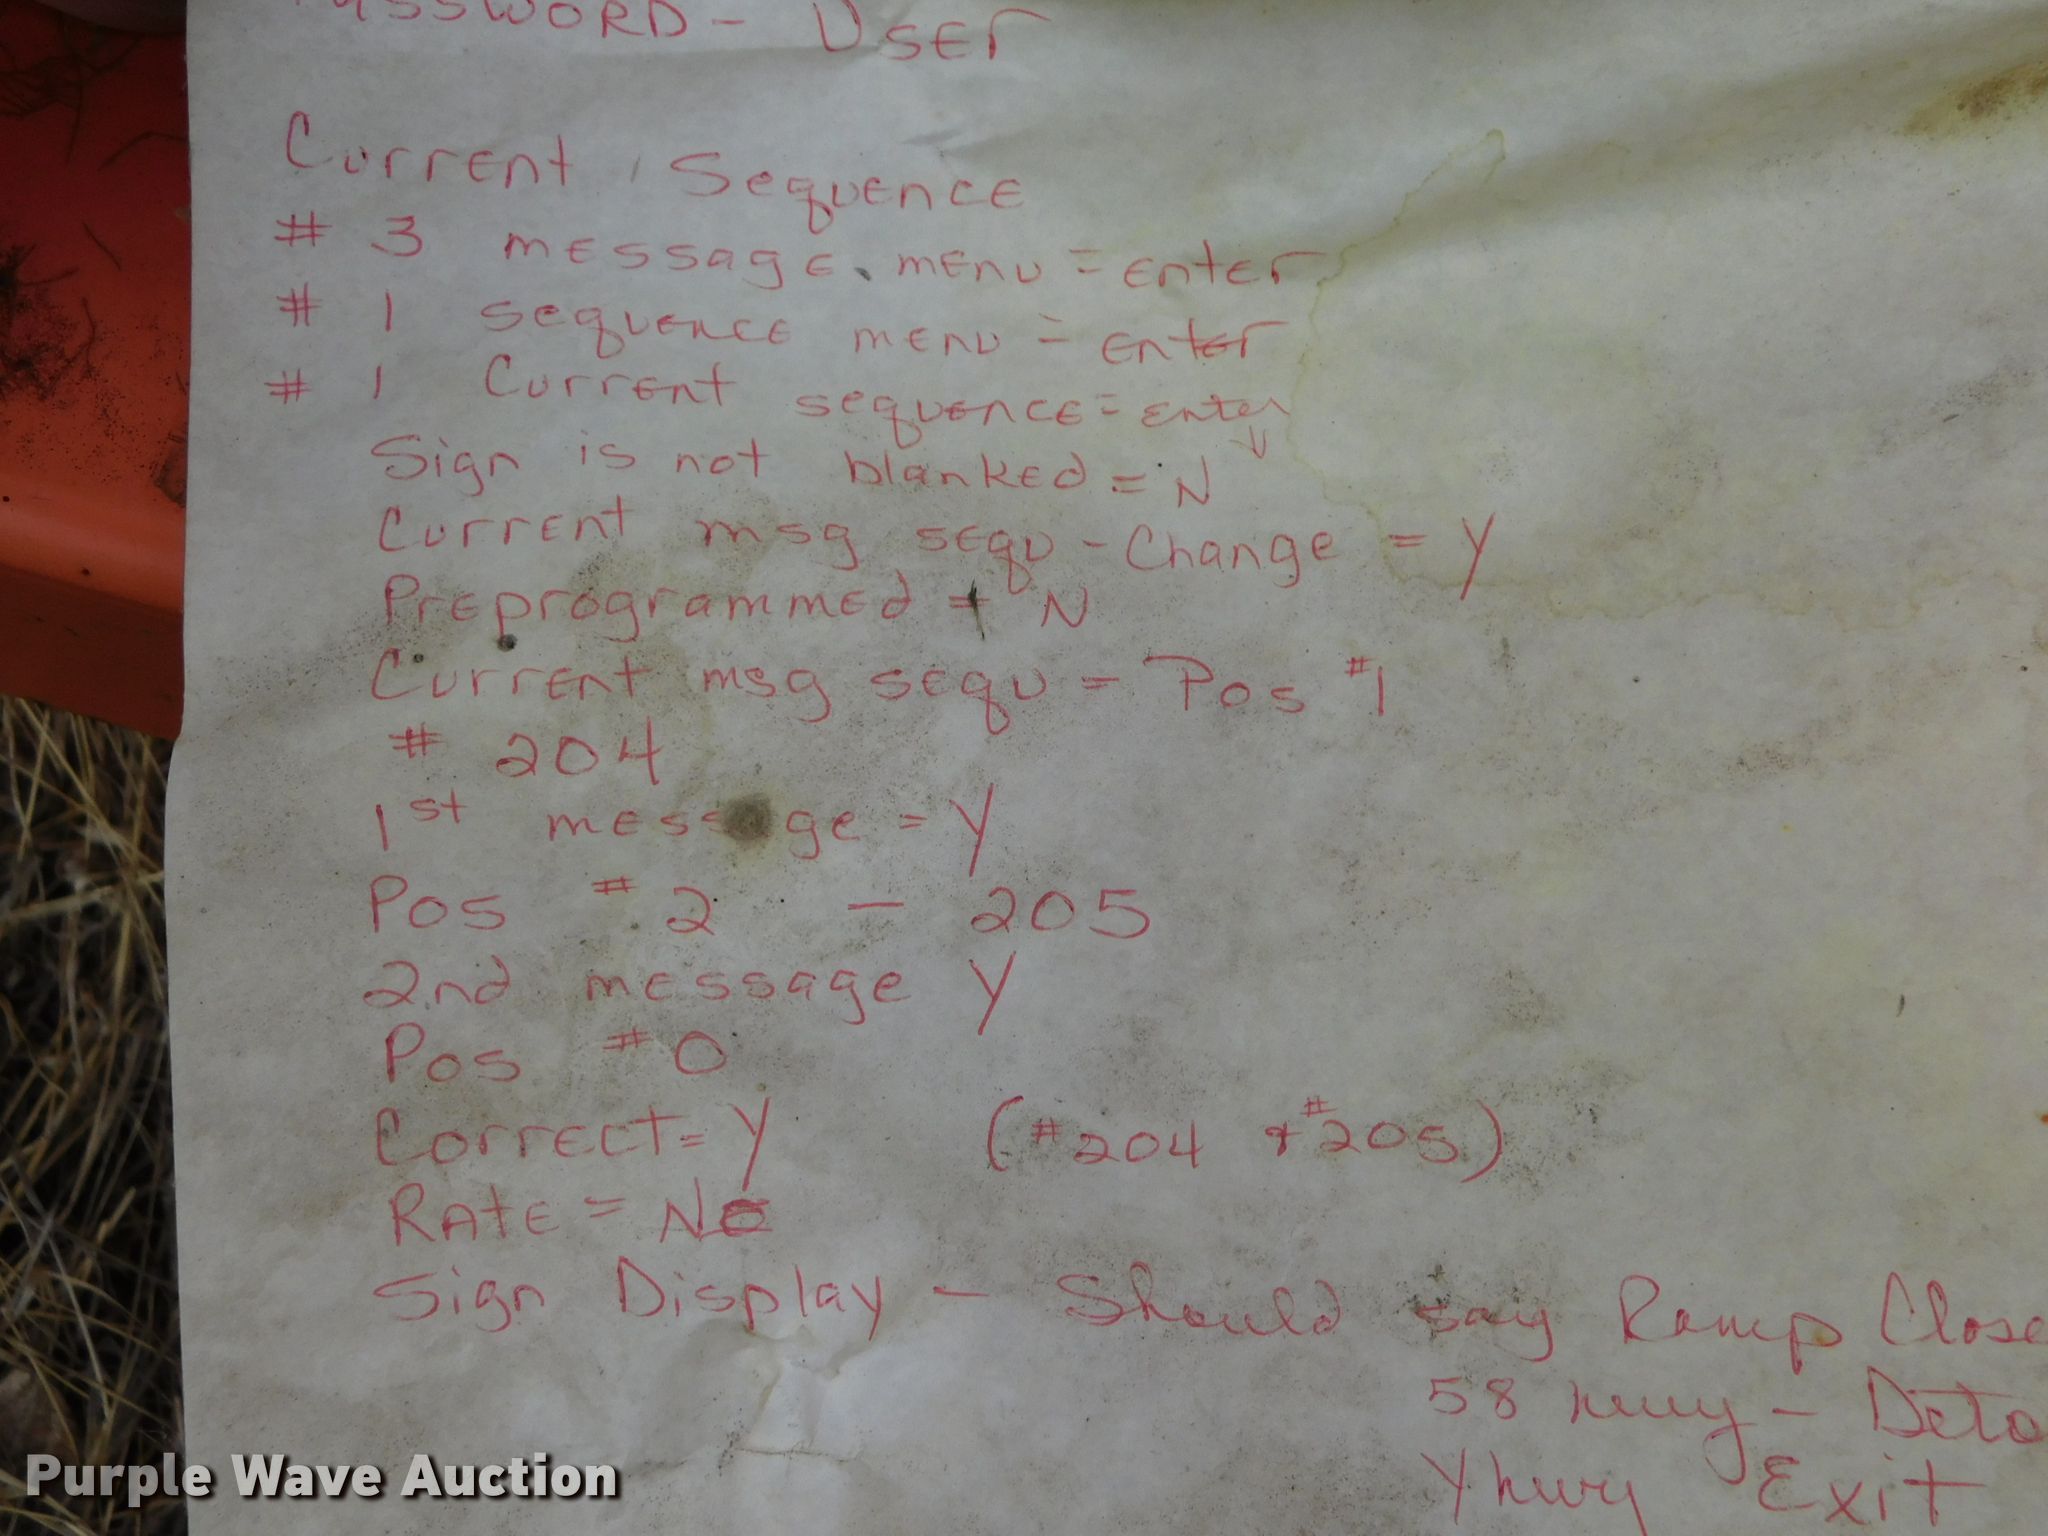 PASSWORD - User
Current Sequence
# 3 message menu = enter
# 1 sequence menu = enter
# 1 Current sequence = enter
Sign is not blanked = N
Current msg sequ - Change = Y
Preprogrammed = N
Current msg sequ - Pos #1
# 204
1st message = Y
Pos #2 - 205
2nd message Y
Pos #0
Correct = Y (#204 + #205)
RATE = NO
Sign Display - Should say Ramp Close
58 hwy - Deto
Y hwy Exit
Purple Wave Auction